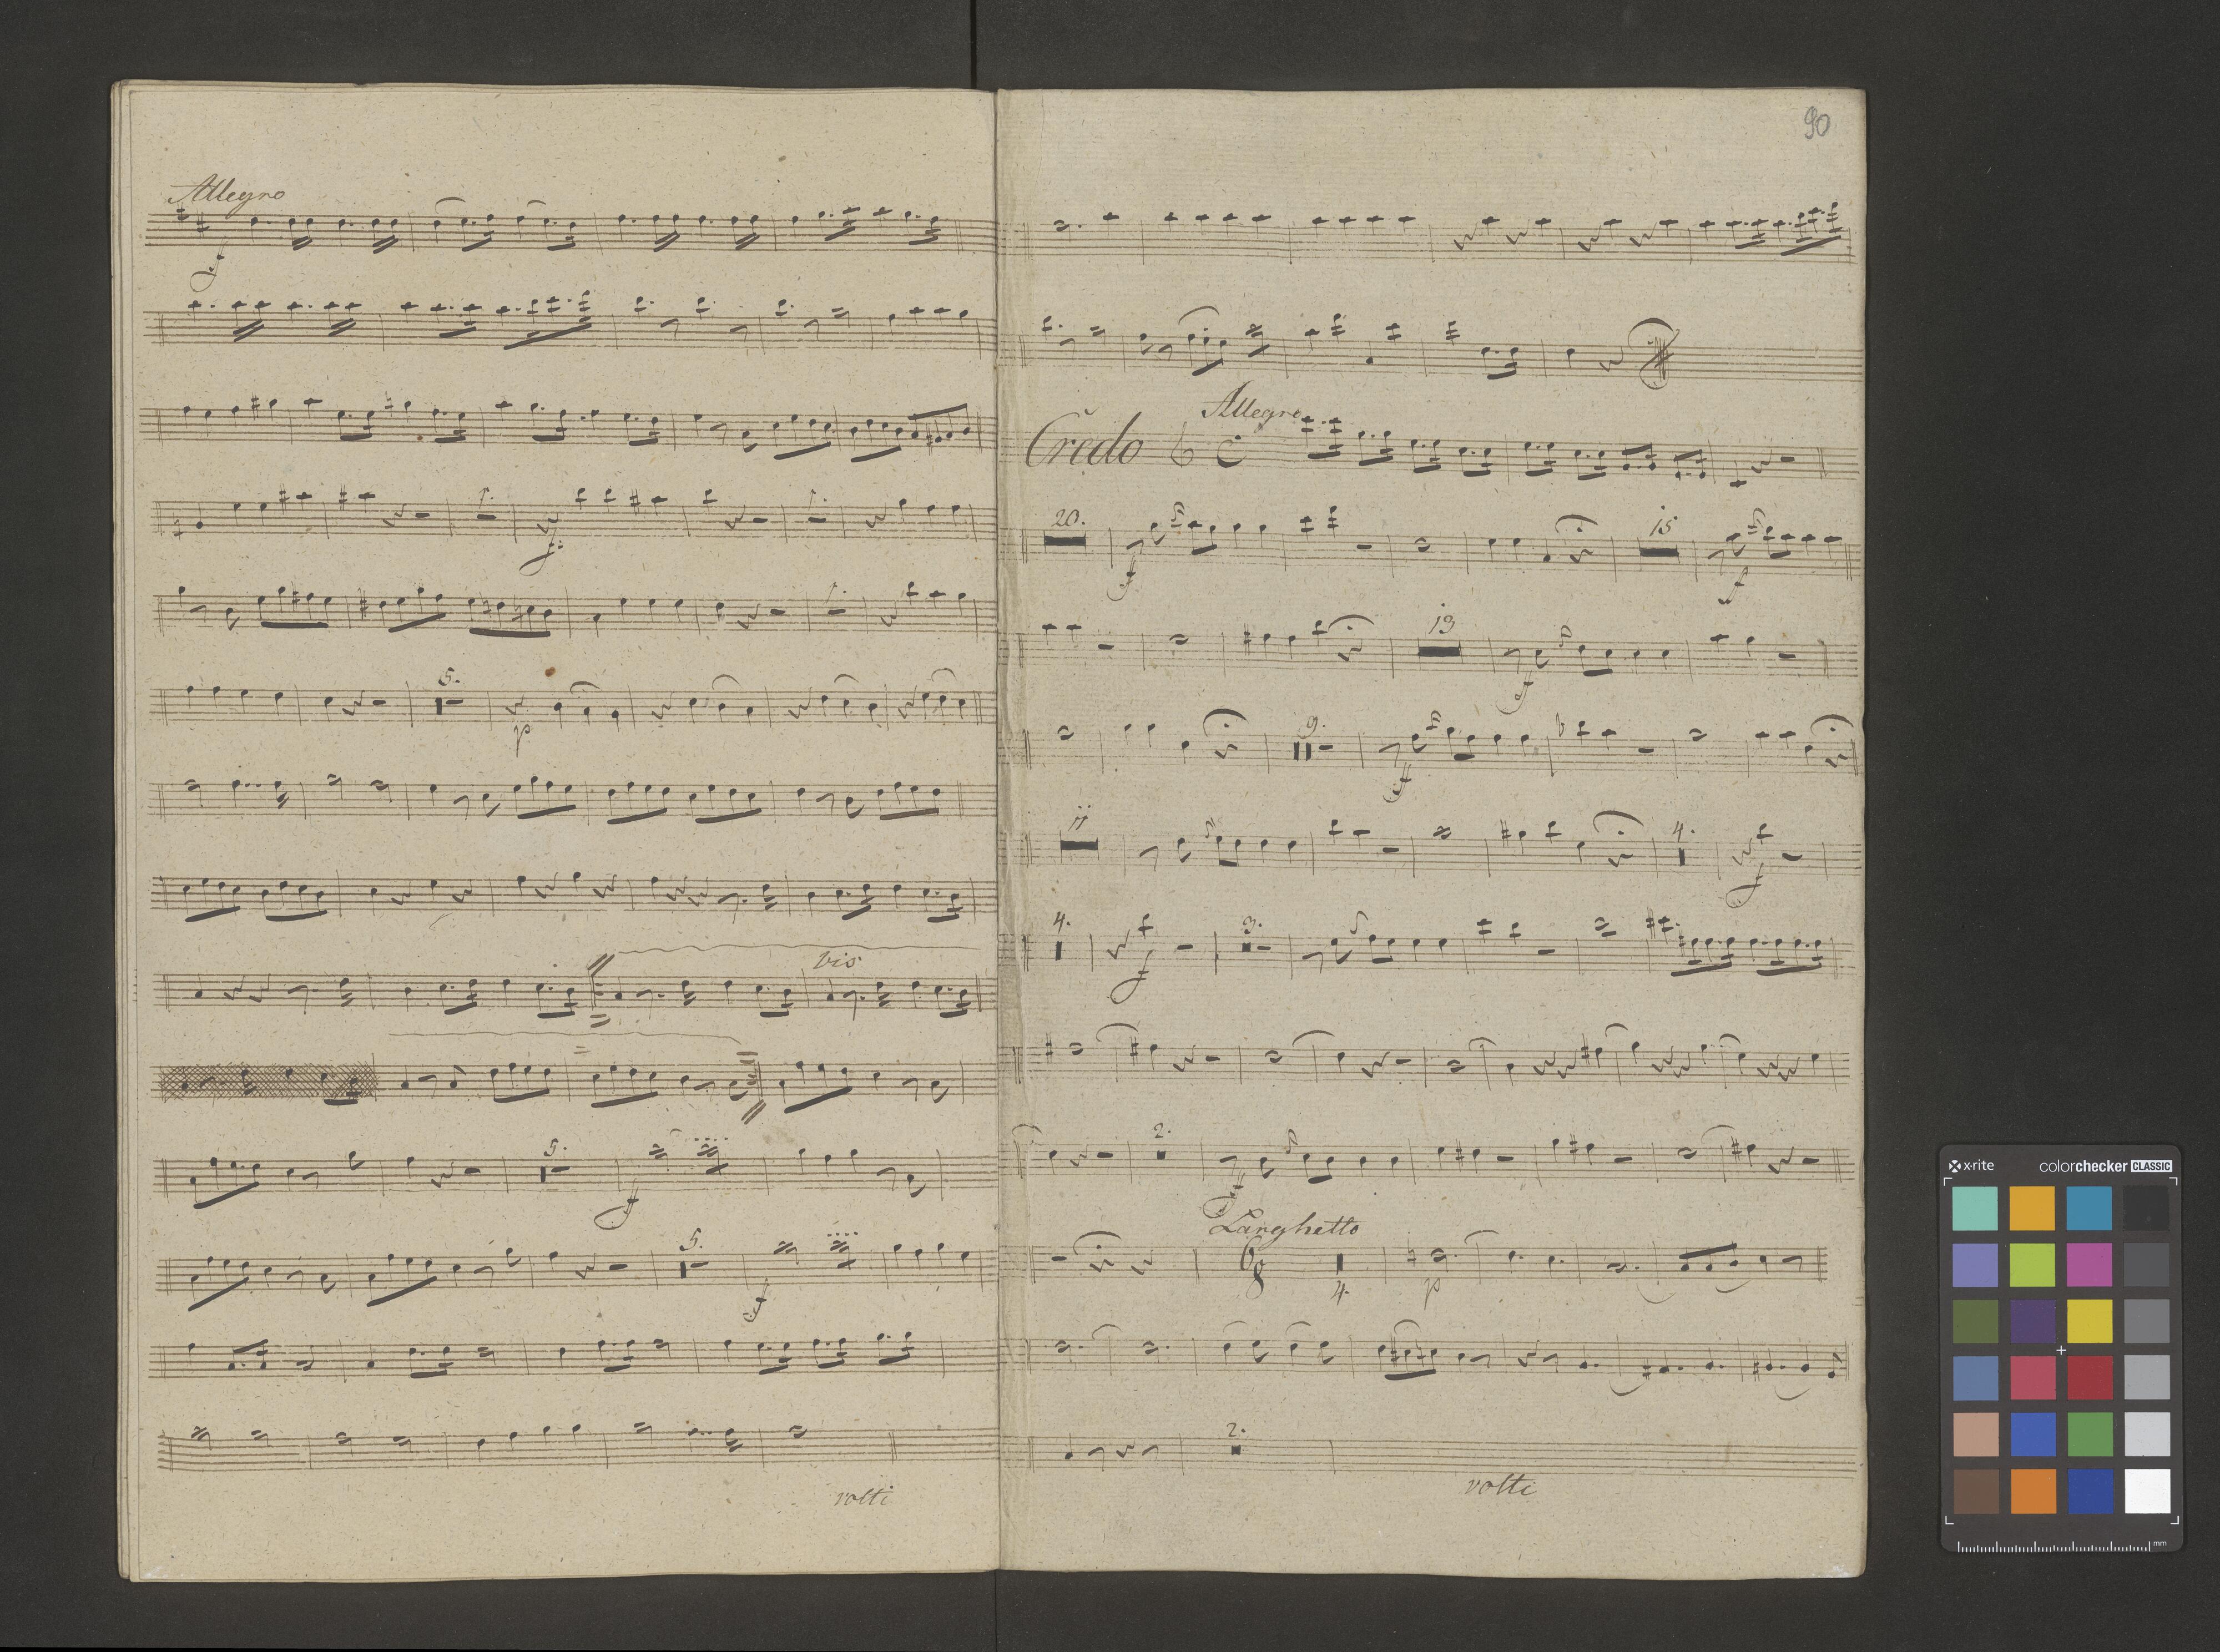 Allegro
f
f:
5.
p
bis
5.
f
5.
f
volti
90
Allegro
Credo
20.
f
15
f
13
f
9.
f
11
4.
f
4.
f
3.
2.
f
Larghetto
6
8
4.
p
2.
volti
x-rite
colorchecker CLASSIC
mm